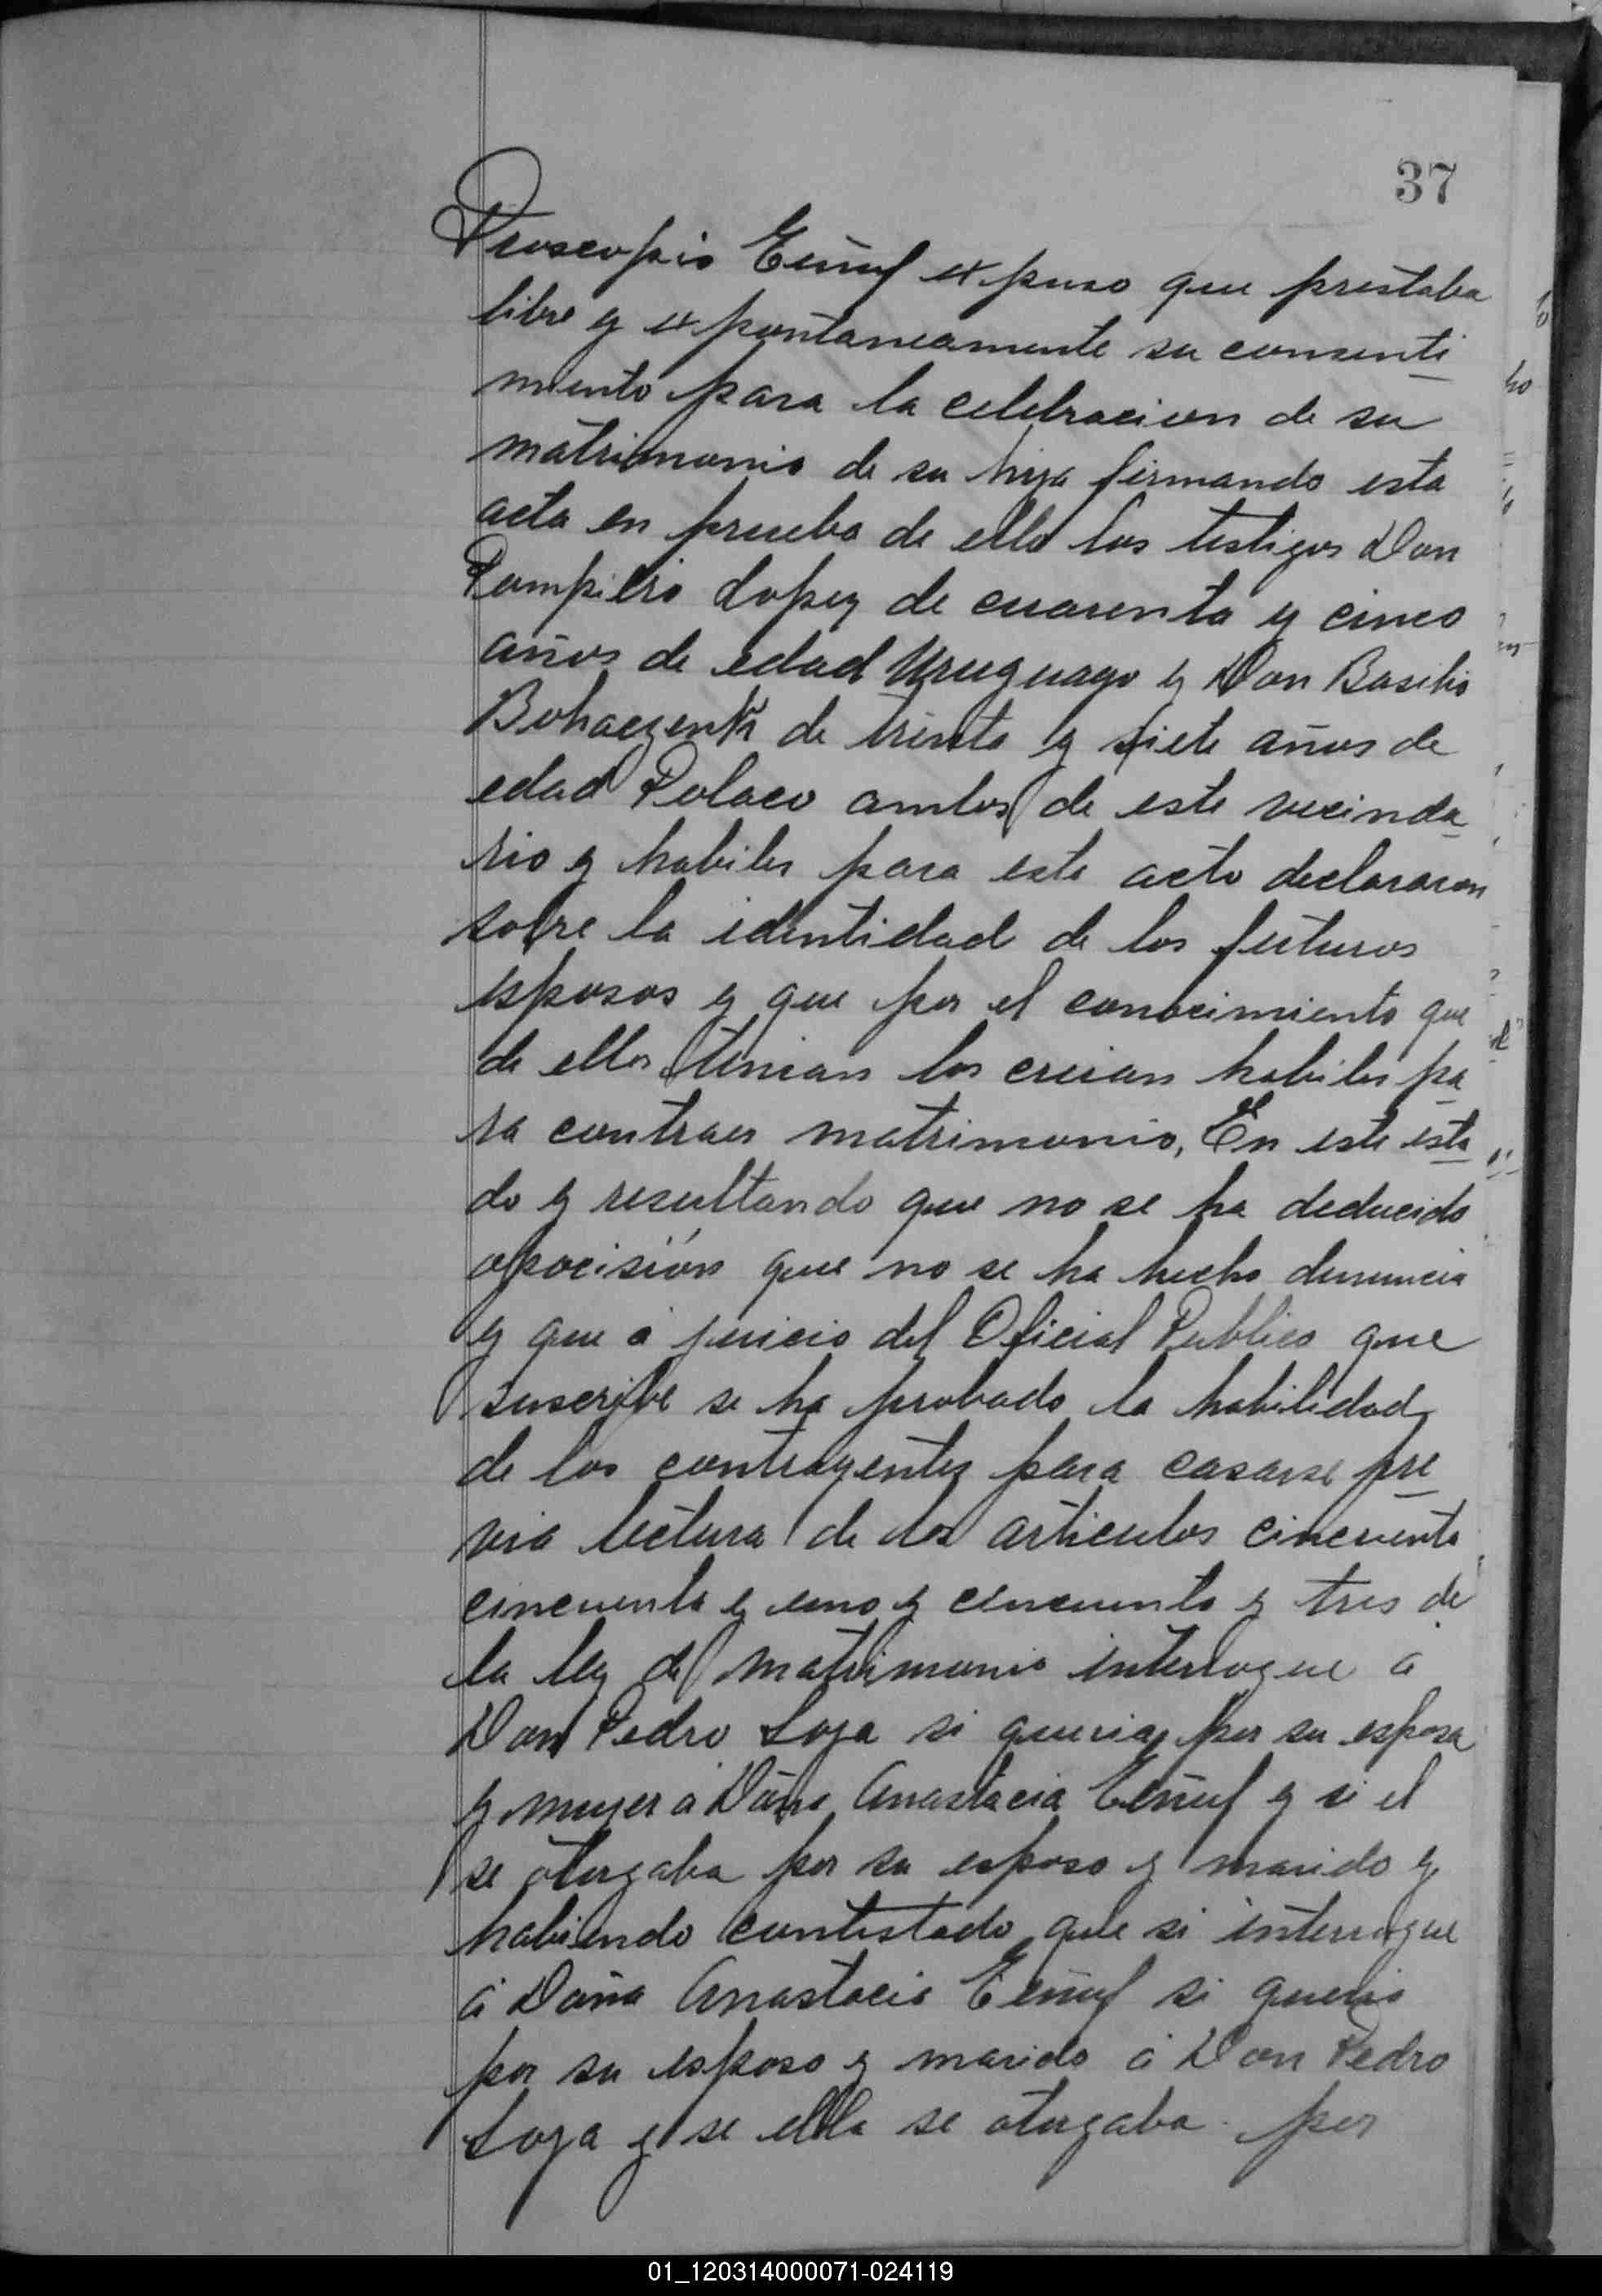 37
Proscopio Eeñuf expuso que prestaba
libre y expontaneamente su consenti
miento para la celebracion de su
matrimonio de su hija firmando esta
acta en prueba de ello los testigos Don
Pompilio Lopez de cuarenta y cinco
años de edad Uruguayo y Don Basilio
de treinta y siete años de
edad Polaco ambos de este vecinda
rio y habiles para este acto declararon
sobre la identidad de los futuros
esposos y que por el conocimiento que
de ellos tenian los creian habiles pa
ra contraer matrimonio, En este esta
do y resultando que no se ha deducido
opocisión que no se ha hecho denuncia
y que á juicio del Oficial Publico que
suscribe se ha probado la habilidad
de los contrayentes para casarse pre
via lectura de los articulos cincuenta
cincuenta y uno y cincuenta y tres de
la ley de matrimonio interrogue a
Don Pedro Loza si queria por su esposa
y mujer a Doña Anastacia Eeñuf y si el
se otorgaba por su esposo y marido y
habiendo contestado que si interrogue
á Doña Anastacia Eeñuf si queria
por su esposo y marido á Don Pedro
Loza y se ella se otorgaba por
01_120314000071-024119